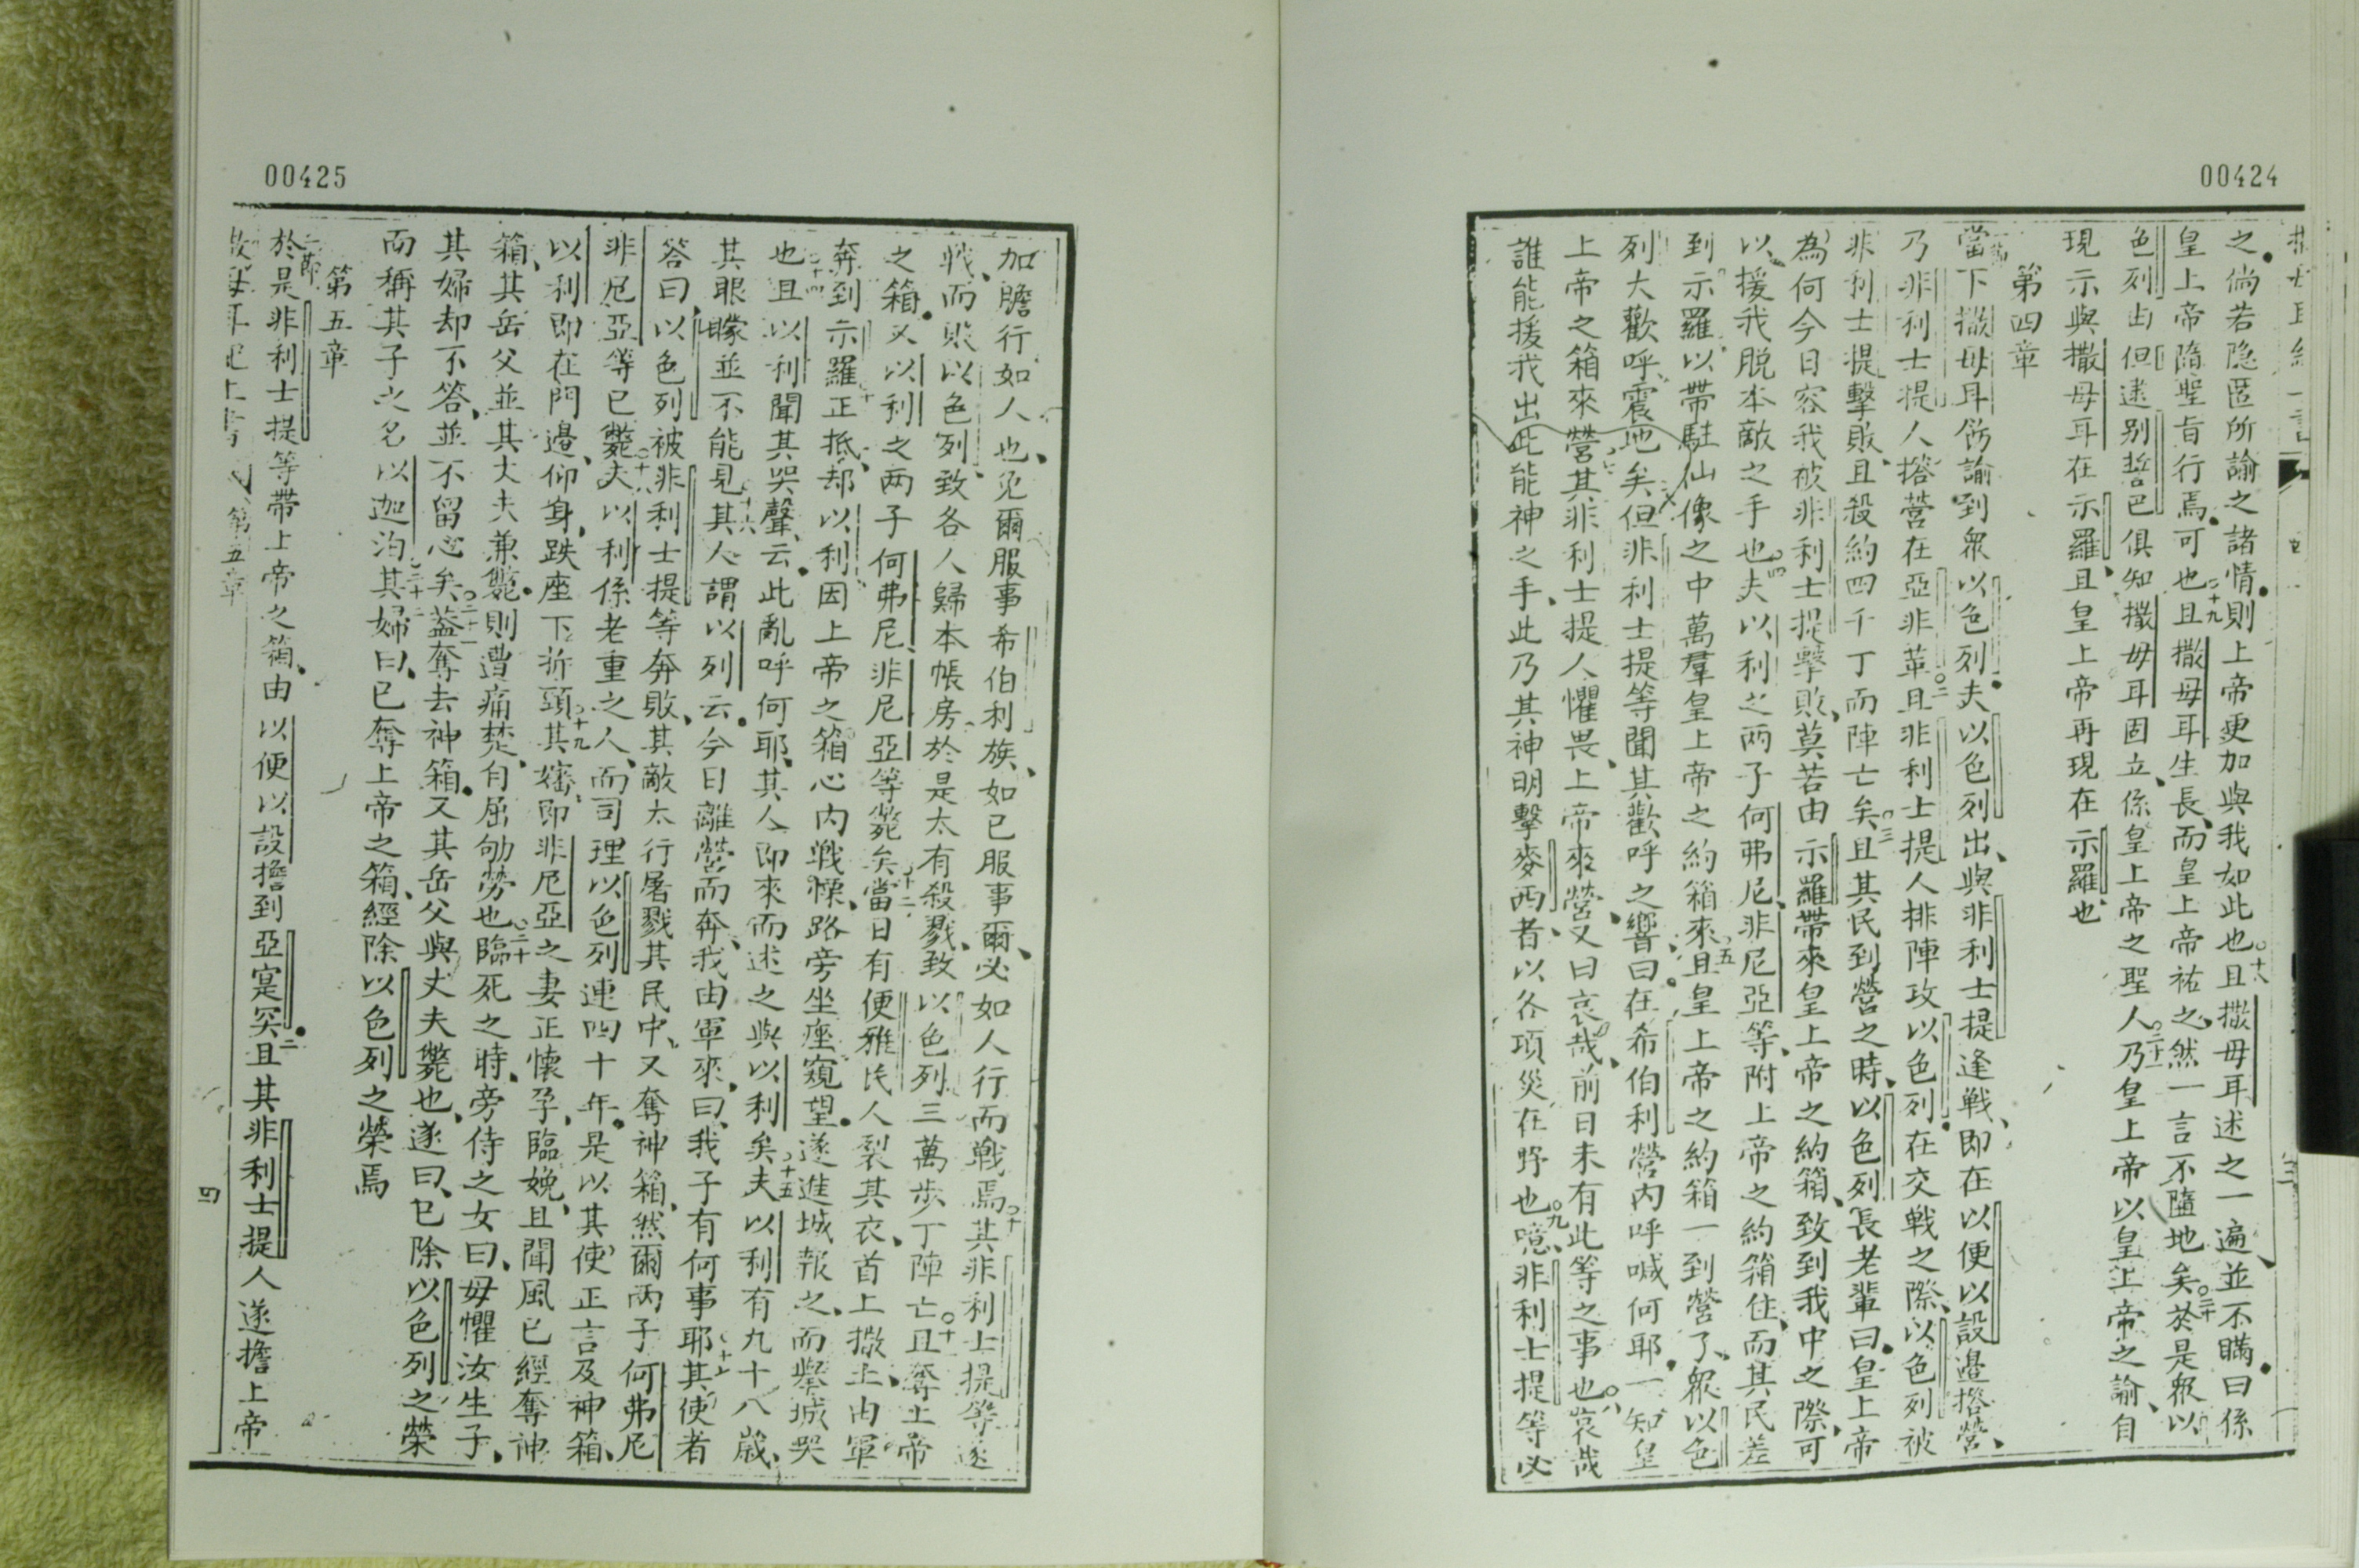 00424
之倘若隐匿所諭之諸情則上帝更加與我如此也○十八且撒母耳述之一遍並不瞞曰係
皇上帝隨聖旨行焉可也○十九且撒母耳生長而皇上帝祐之然一言不隨地矣○二十於是眾以
色列由但速别誓巴俱知撒母耳固立係皇上帝之聖人○二十一乃皇上帝以皇上帝之諭自
現示與撒母耳在示羅且皇上帝再現在示羅也
第四章
當下撒母耳所諭到眾以色列夫以色列出與非利士提逢戰即在以便以設邉搭營
乃非利士提人搭營在亞非革○二且非利士提人排陣攻以色列在交戰之際以色列被
非利士提擊敗且殺約四千丁而陣亡矣○三且其民到營之時以色列長老輩曰皇上帝
為何今日容我被非利士提擊敗莫若由示羅帶來皇上帝之約箱致到我中之際可
以援我脱本敵之手也○四夫以利之两子何弗尼非尼亞等附上帝之約箱住而其民差
到示羅以帶駐仙像之中萬羣皇上帝之約箱來○五且皇上帝之約箱一到營了眾以色
列大歡呼震地矣但非利士提等聞其歡呼之響曰在希伯利營内呼喊何耶一知皇
上帝之箱來營其非利士提人懼畏上帝來營又曰哀哉前日未有此等之事也○八哀哉
誰能援我出此能神之手此乃其神明擊麥西者以各項災在野也○九噫非利士提等必
00425
加膽行如人也免爾服事希伯利族如已服事爾必如人行而戰焉○十其非利士提等遂
戰而敗以色列致各人歸本帳房於是太有殺戮致以色列三萬步丁陣亡○十一且奪上帝
之箱又以利之两子何弗尼非尼亞等斃矣○十二當日有便雅民人裂其衣首上撒土由軍
奔到示羅正抵却以利因上帝之箱心内戰慄路旁坐座窺望遂進城報之而舉城哭
也○十四且以利聞其哭聲云此亂呼何耶其人即來而述之與以利矣○十五夫以利有九十八歲
其眼矇並不能見○十六其人謂以列云今日離營而奔我由軍來曰我子有何事耶○十七其使者
答曰以色列被非利士提等奔敗其敵太行屠戮其民中又奪神箱然爾两子何弗尼
非尼亞等已斃○十八夫以利係老重之人而司理以色列連四十年是以其使正言及神箱
以利即在門邉仰身跌座下折頭○十九其媳即非尼亞之妻正懷孕臨娩且聞風已經奪神
箱其岳父並其丈夫兼斃則遭痛楚自屈劬勞也○二十臨死之時旁侍之女曰毋懼汝生子
其婦却不答並不留心矣○二十一蓋奪去神箱又其岳父與丈夫斃也遂曰已除以色列之榮
而稱其子之名以迦泊○二十二其婦曰已奪上帝之箱經除以色列之榮焉
第五章
一節於是非利士提等帶上帝之箱由以便以設擔到亞寔突○二且其非利士提人遂擔上帝
第五章
四